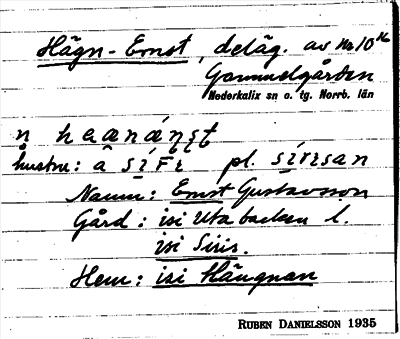 Hägn-Ernst, deläg. av Nr 10 16
Gammelgården
Nederkalix sn o. tg. Norrb. län
n haanánst
hustru: a síFt pl. sírisan
Namn: Ernst Gustavsson
Gård: isi Utabacken l.
isi Siris.
Hem: isi Hängnan
RUBEN DANIELSSON 1935